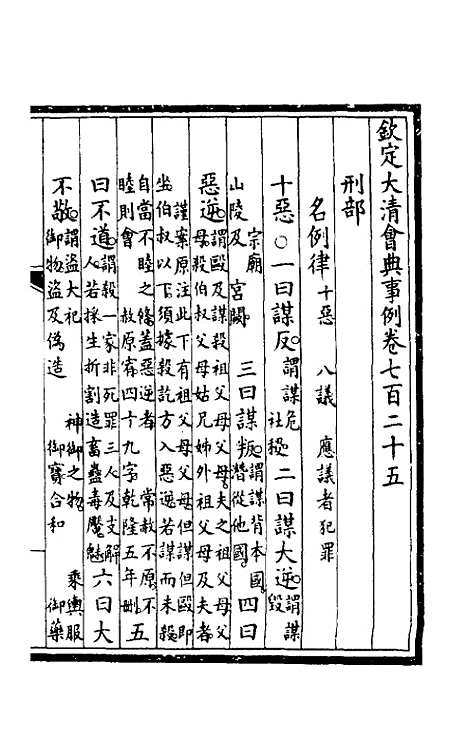 欽定大清會典事例卷七百二十五
刑部
名例律 十惡 八議 應議者犯罪
十惡○一曰謀反。謂謀危社稷 二曰謀大逆。謂謀毀
宗廟山陵及宮闕 三曰謀叛。謂謀背本國潛從他國 四曰
惡逆。謂毆及謀殺祖父母父母夫之祖父母父母殺伯叔父母姑兄姊外祖父母及夫者
謹案原注此下有祖父母父母但謀但毆即坐伯叔以下須據殺訖方入惡逆若謀而未殺
自當不睦之條蓋惡逆者常赦不原不睦則會赦原宥四十九字乾隆五年刪 五
曰不道。謂殺一家非死罪三人及支解人若採生折割造畜蠱毒魘魅 六曰大
不敬。謂盜大祀神御之物乘輿服御物盜及偽造御寶合和御藥